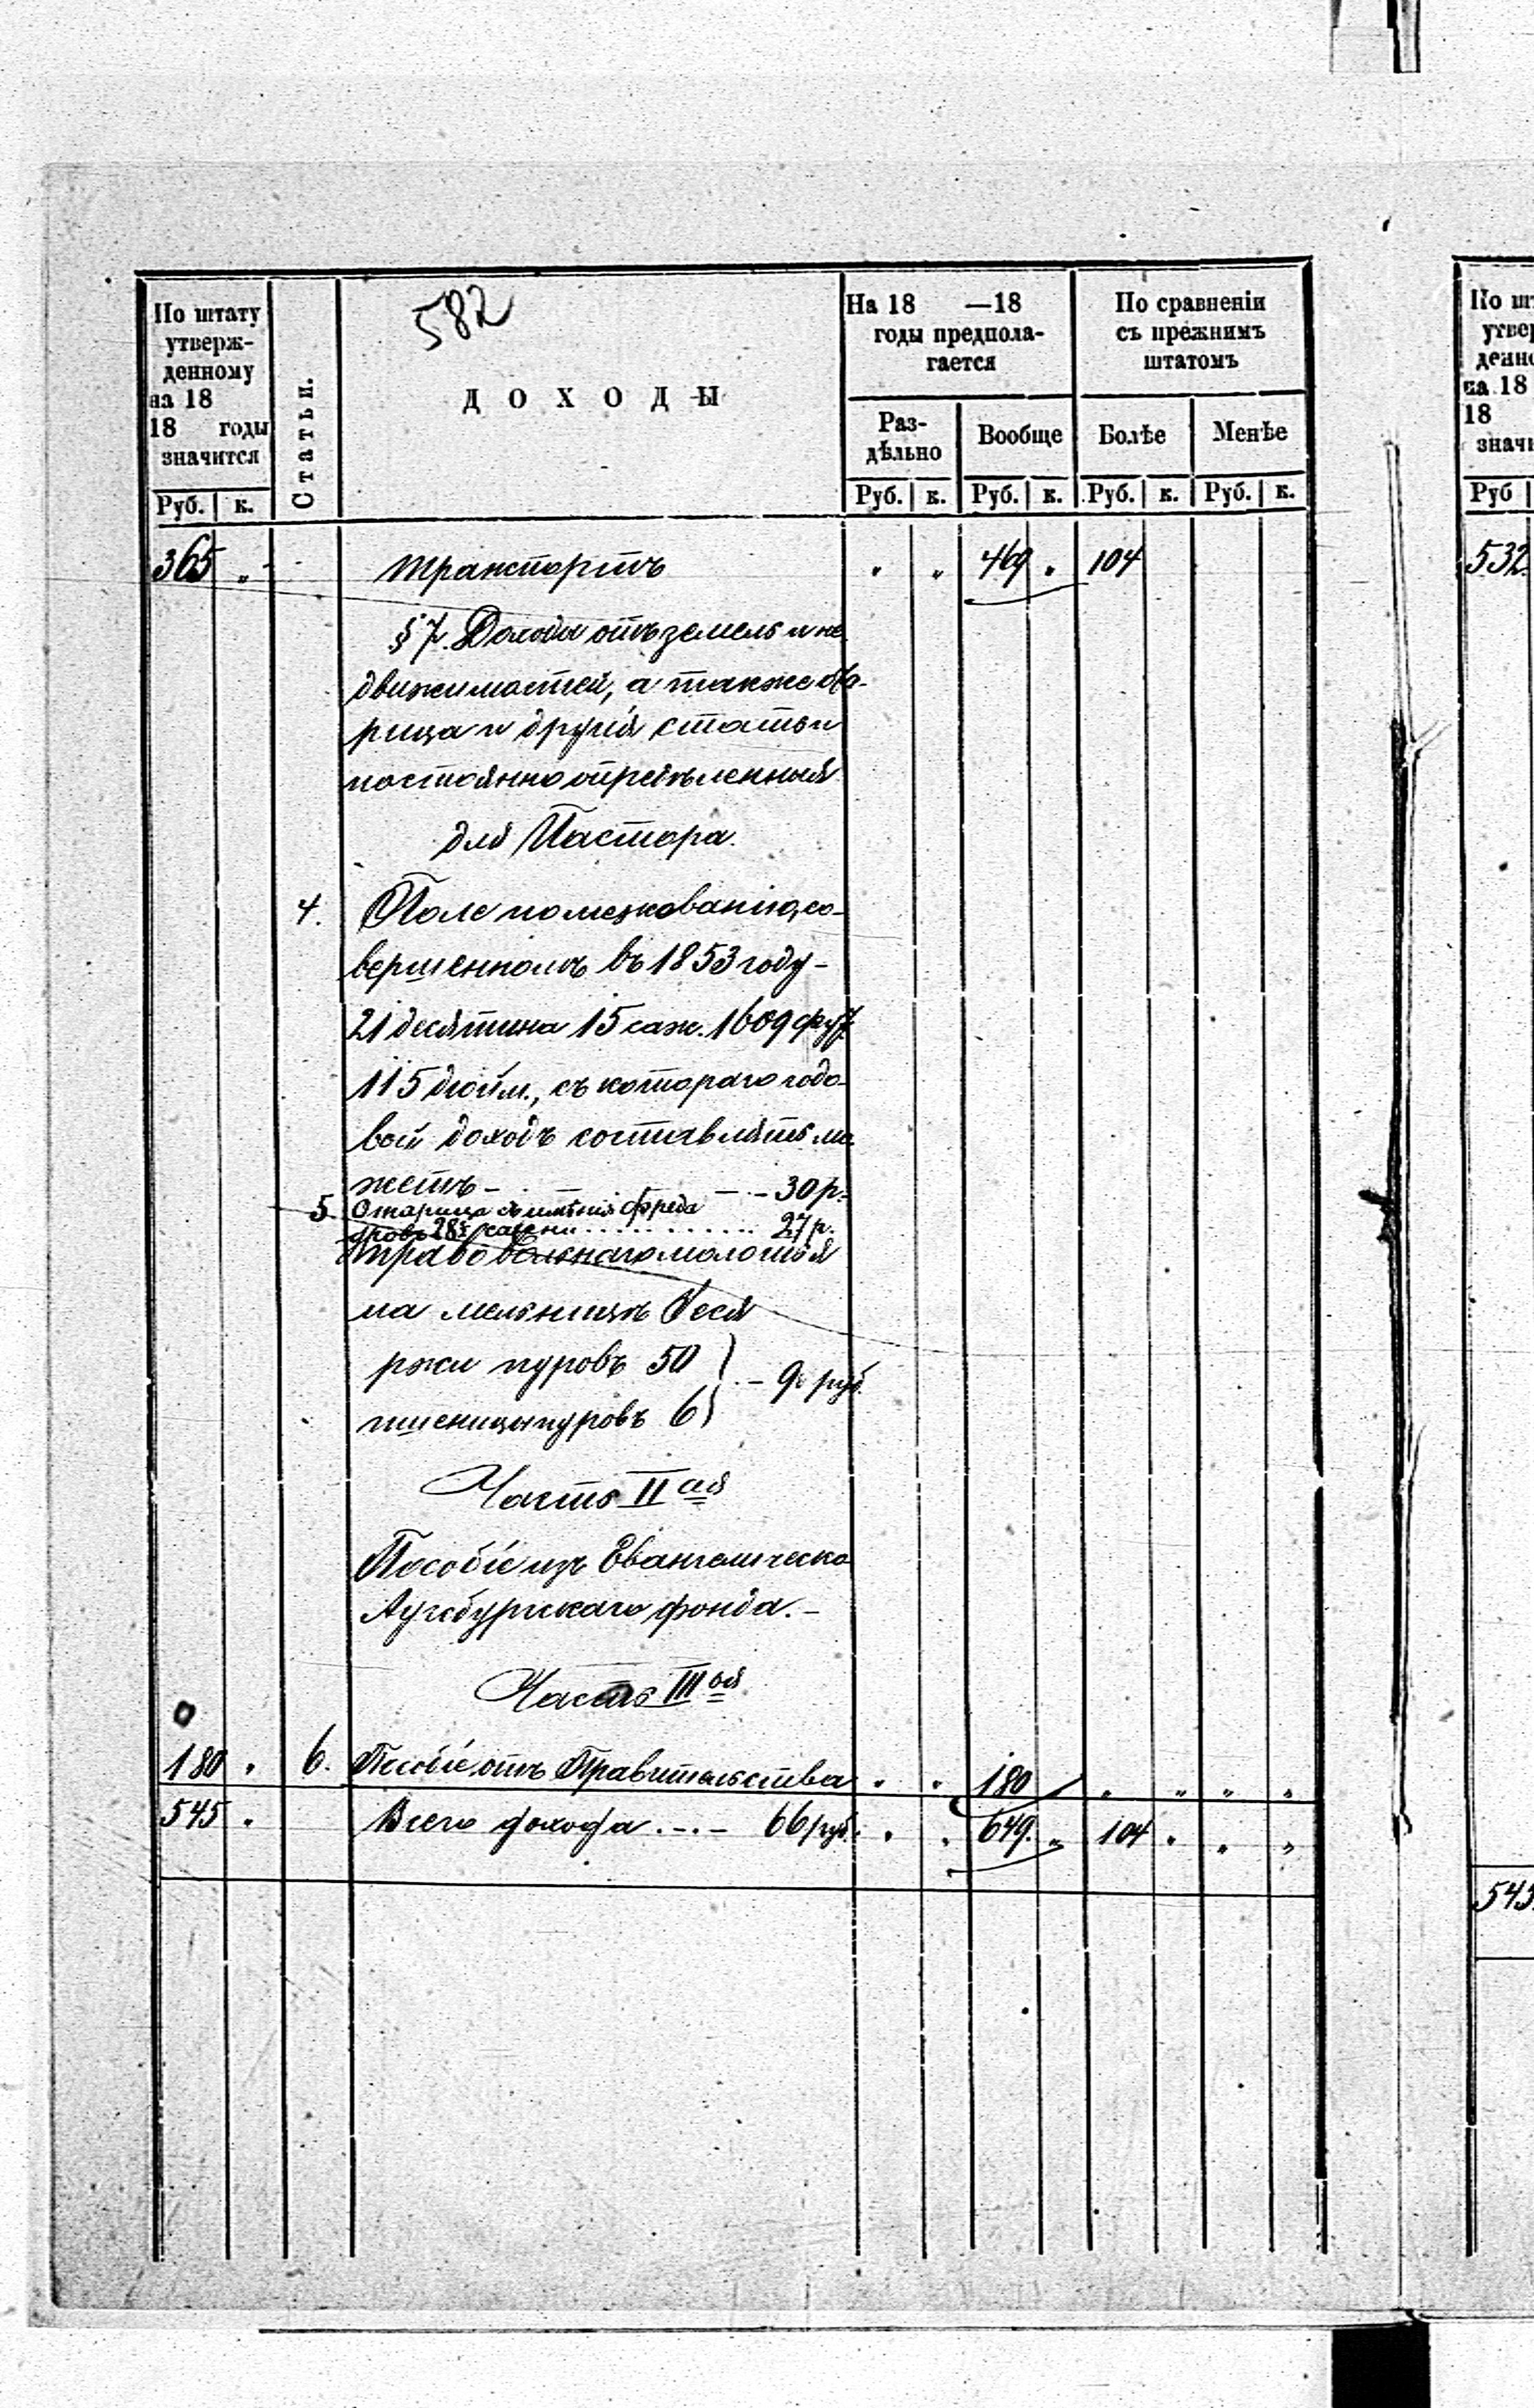 582
По штату
утверж-
денному
на 18
18 годы
значится
Руб. к.
Статьи.
ДОХОДЫ
На 18 —18
годы предпола-
гается
Раз-
дѣльно
Вообще
Руб. к. Руб. к.
По сравненіи
съ прежнимъ
штатомъ
Болѣе Менѣе
Руб. к. Руб. к.
365 „ Транспортъ „ „ 469 „ 104
§ 7. Доходы отъ земель и не
движимостей, а также
и другія статьи
постоянно опредѣленныя
для Пастора.
4. Поле по межеванію, со-
вершенномъ въ 1853 году –
21 десятина 15 саж. 1609 фут.
115 дюйм., съ котораго годо-
вой доходъ составлять мо
жетъ – – – 30 р.
5. съ имѣнія Фреда
дровъ 28 сажени 27 р.
Право вольнаго молотья
на мельницѣ
ржи пуровъ 50 } – 9 руб.
пшеницы пуровъ 6 }
Часть II ая
Пособіе изъ Евангелическо
Аугсбургскаго фонда. –
Часть III ья
180 „ 6. Пособіе отъ Правительства „ „ 180 „ „ „ „
545 „ Всего дохода . – . – 66 руб. „ „ 649. „ 104 „ „ „
Руб
532
545